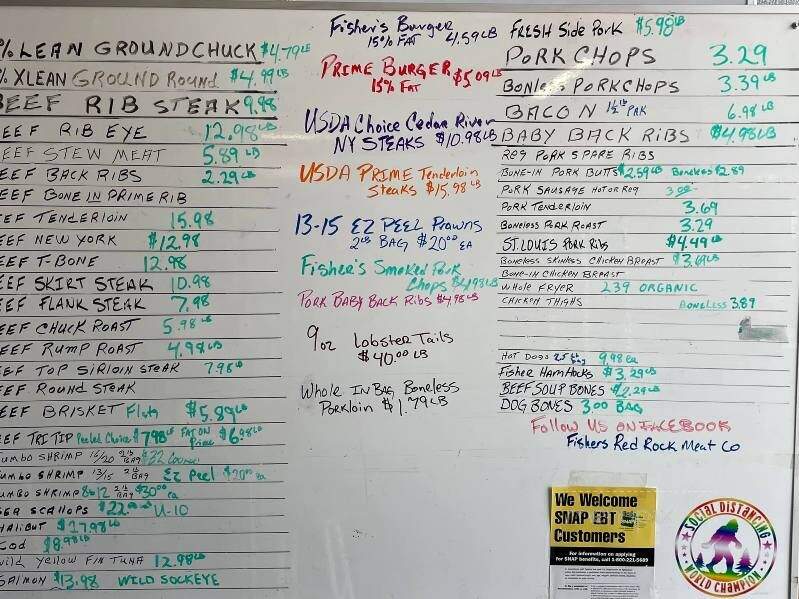 % LEAN GROUNDCHUCK $4.79LB
% XLEAN GROUND ROUND $4.99LB
BEEF RIB STEAK 9.98
EEF RIB EYE 12.98LB
EEF STEW MEAT 5.89 LB
EEF BACK RIBS 2.29LB
EEF BONE IN PRIME RIB
EEF TENDERLOIN 15.98
EEF NEW YORK $12.98
EEF T-BONE 12.98
EEF SKIRT STEAK 10.98
EEF FLANK STEAK 7.98
EEF CHUCK ROAST 5.98 LB
EEF RUMP ROAST 4.98LB
EEF TOP SIRLOIN STEAK 7.98LB
EEF ROUND STEAK
EEF BRISKET Flats $5.89LB
EEF TRI TIP Peeled Choice $7.98LB FAT ON Prime $6.98LB
UMBO SHRIMP 16/20 2LB BAG $32
UMBO SHRIMP 13/15 2LB BAG EZ Peel $20.00 ea
UMBO SHRIMP 8&12 2LB BAG $30.00 ea
SEA SCALLOPS $22.00 LB U-10
HALIBUT $27.98LB
COD $8.98LB
Wild Yellow Fin Tuna 12.98LB
SALMON $13.98 WILD SOCKEYE
Fisher's Burger
15% FAT 4.59LB
PRIME BURGER $5.09LB
15% FAT
USDA Choice Cedar River
NY STEAKS $10.98LB
USDA PRIME Tenderloin
Steaks $15.98 LB
13-15 EZ PEEL Prawns
2LB BAG $20.00 EA
Fisher's Smoked Pork
Chops $4.98LB
PORK BABY BACK Ribs $4.98LB
9oz Lobster Tails
$40.00 LB
Whole IN BAG Boneless
Porkloin $1.79LB
FRESH Side Pork $5.98LB
PORK CHOPS 3.29
BONLESS PORKCHOPS 3.39LB
BACON 1½ lb PAK 6.98 LB
BABY BACK RIBS $4.98LB
REG PORK SPARE RIBS
BONE-IN PORK BUTTS $2.59LB Boneless $2.89
PORK SAUSAGE HOT OR REG 3.09
PORK TENDERLOIN 3.69
BONELESS PORK ROAST 3.29
ST. LOUIS PORK Ribs $4.49LB
BONELESS SKINLESS CHICKEN BREAST $3.69LB
BONE-IN CHICKEN BREAST
WHOLE FRYER 2.39 ORGANIC
CHICKEN THIGHS BONELESS 3.89
HOT DOGS 2.5 lb Bag 9.98 ea
FISHER HAM HOCKS $3.29LB
BEEF SOUP BONES $2.29LB
DOG BONES 3.00 BAG
Follow US ON FACEBOOK
Fishers Red Rock Meat Co
We Welcome
SNAP EBT
Customers
For information on applying
for SNAP benefits, call 1-800-221-5689
SOCIAL DISTANCING
WORLD CHAMPION